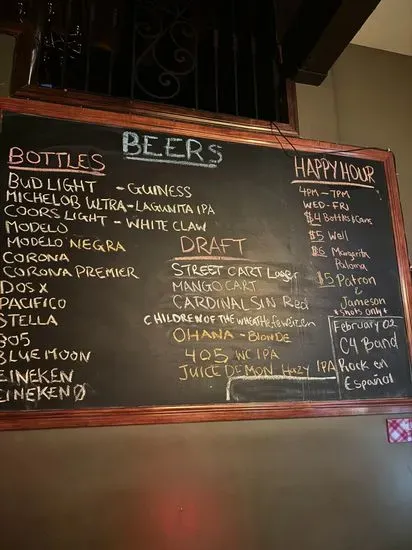 BEERS
BOTTLES
BUD LIGHT - GUINESS
MICHELOB ULTRA - LAGUNITA IPA
COORS LIGHT - WHITE CLAW
MODELO
MODELO NEGRA
CORONA
CORONA PREMIER
DOS X
PACIFICO
STELLA
805
BLUE MOON
EINEKEN
EINEKEN Ø
DRAFT
STREET CART Lager
MANGO CART
CARDINAL SIN Red
CHILDREN OF THE WHEAT Hefeweizen
OHANA - BLONDE
405 WC IPA
JUICE DEMON HAZY IPA
HAPPY HOUR
4PM - 7PM
WED - FRI
$4 Bottles/Cans
$5 Well
$6 Margarita
Paloma
$5 Patron
&
Jameson
* shots only *
February 02
C4 Band
Rock en
Español